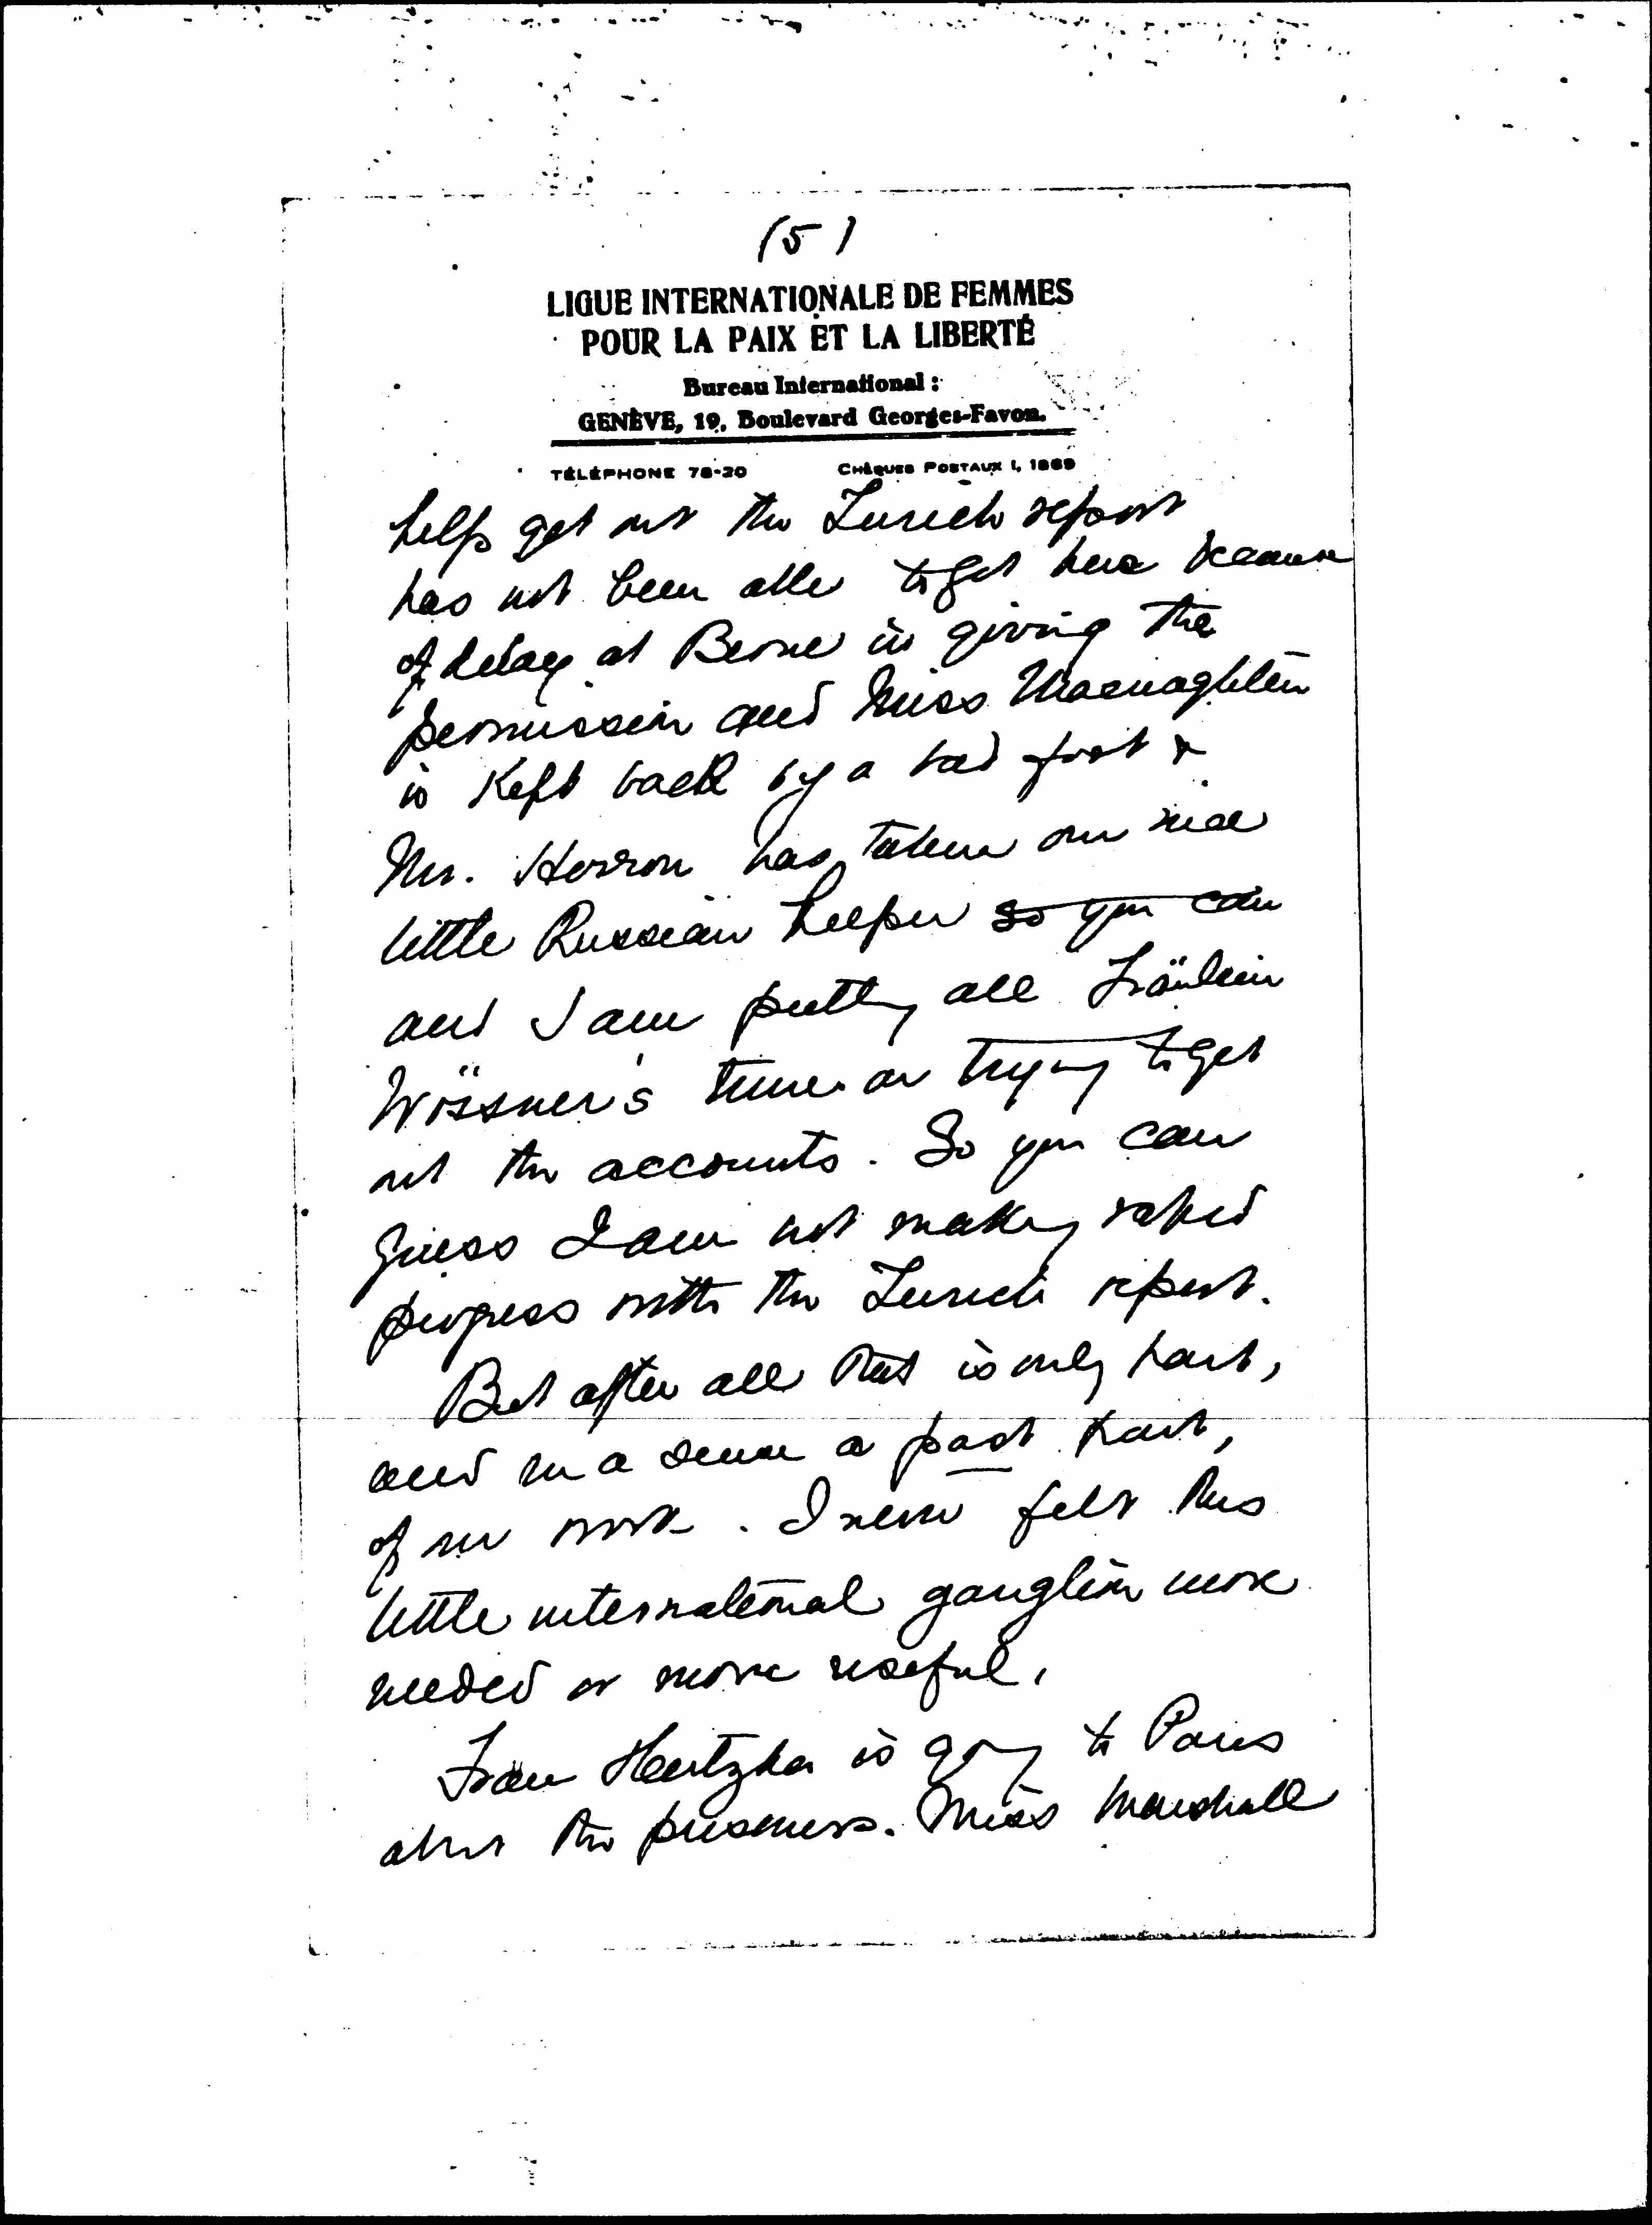 (5)
LIGUE INTERNATIONALE DE FEMMES
POUR LA PAIX ET LA LIBERTÉ
Bureau International :
GENÈVE, 19, Boulevard Georges-Favon.
TÉLÉPHONE 78-20 CHÈQUES POSTAUX I, 1869
help get out the Zurich report
has not been able to get here because
of delay at Berne in giving the
permission and Miss Macnaghten
is kept back by a bad foot &
Mr. Herron has taken our nice
little Russian helper so you can
and I am putting all Fräulein
Wössner's time on trying to get
out the accounts. So you can
guess I am not making rapid
progress with the Zurich report.
But after all that is only part,
and in a sense a past part,
of our work. I never felt this
little international ganglion more
needed or more useful.
Frau Hertzka is going to Paris
about the prisoners. Miss Marshall